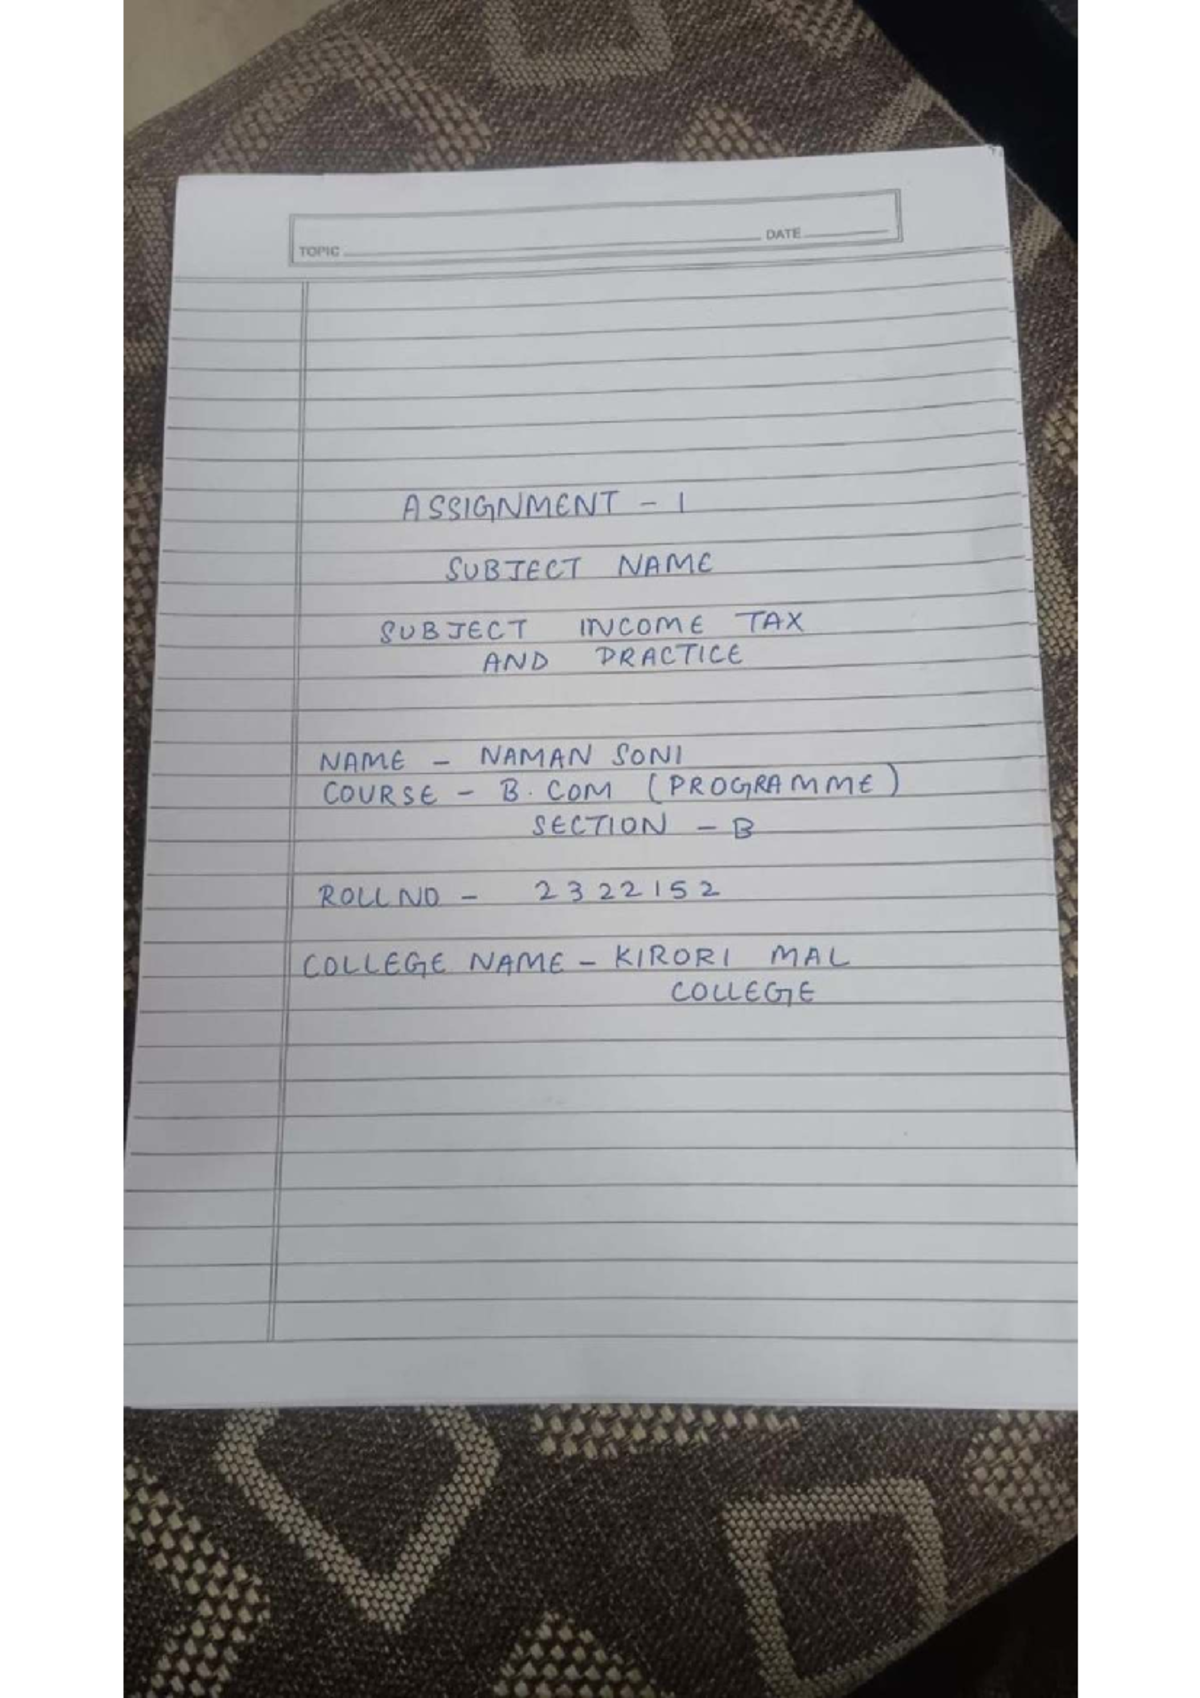 TOPIC DATE
ASSIGNMENT - 1
SUBJECT NAME
SUBJECT INCOME TAX
AND PRACTICE
NAME - NAMAN SONI
COURSE - B. COM (PROGRAMME)
SECTION - B
ROLL NO - 2322152
COLLEGE NAME - KIRORI MAL
COLLEGE